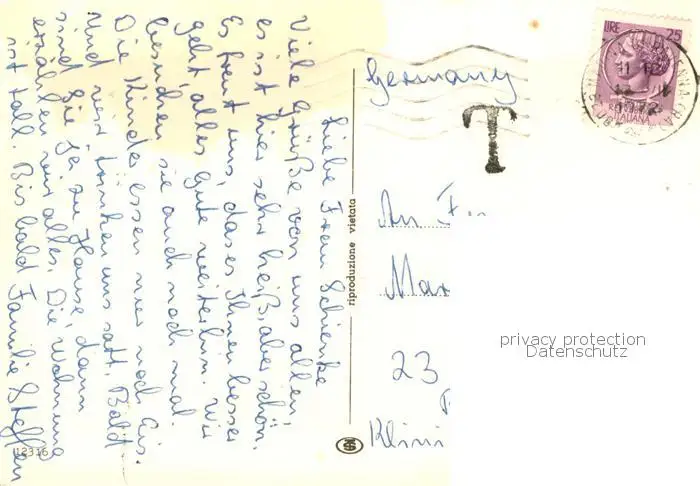 Liebe Frau Schienke
Viele Grüße von uns allen,
es ist hier sehr heiß, aber schön.
Es freut uns, das es Ihnen besser
geht alles gute weiterhin. Wir
besuchen sie auch noch mal.
Die Kinder essen nur noch Eis.
Und wir trinken uns satt. Bald
sind Sie ja zu Hause, dann
erzählen wir alles. Die Wohnung
ist toll. Bis bald Familie Steffen
12316
riproduzione vietata
Germany
T
An F
Mar
23
Klini
LIRE 25
ITALIANA
1972
privacy protection
Datenschutz